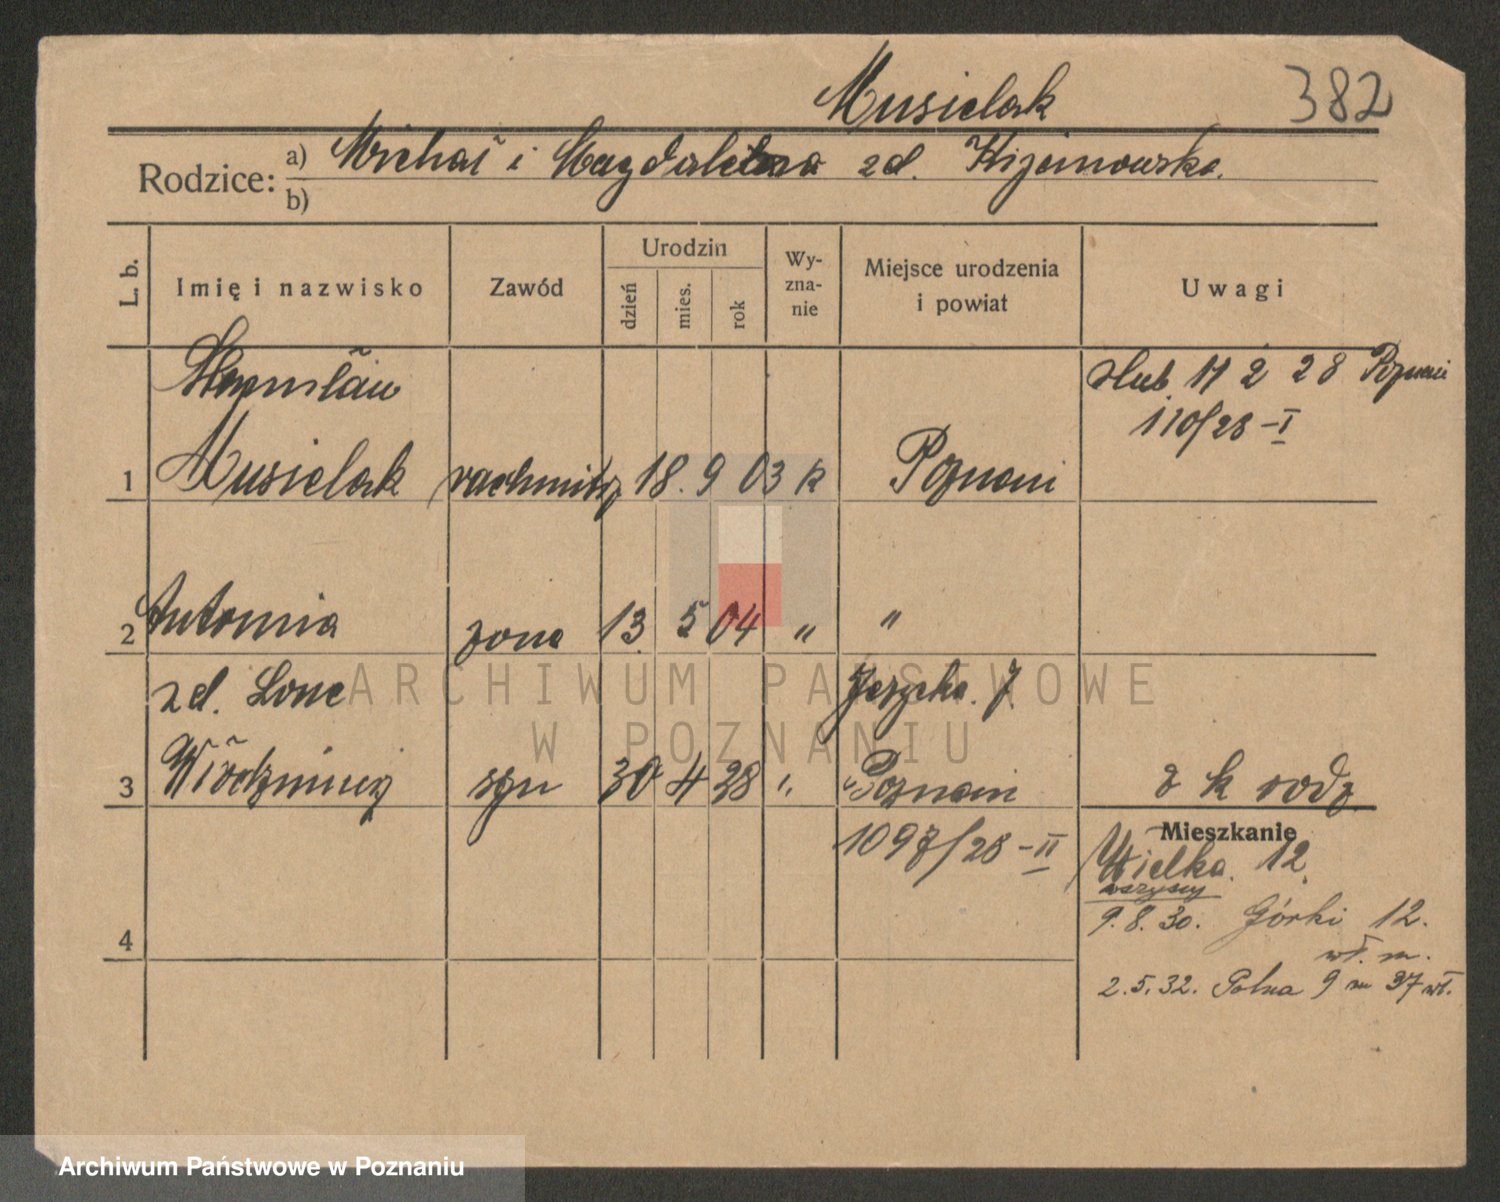 Musielak 382
Rodzice: a) Michał i Magdalena zd.
b)
L. b. Imię i nazwisko Zawód Urodzin dzień mies. rok Wy-zna-nie Miejsce urodzenia i powiat Uwagi
Stanisław ślub 11 2 28 Poznań
110/28-I
1 Musielak 18. 9 03 k Poznań
2 Antonina żona 13 5 04 " "
zd. Lone
3 Włodzimierz syn 30 4 28 " Poznań z k rodz
1097/28-II
Mieszkanie
Wielka 12
wszyscy
9.8.30. Górki 12.
wł. m.
4
2.5.32. Polna 9 m 37 wł.
ARCHIWUM PAŃSTWOWE
W POZNANIU
Archiwum Państwowe w Poznaniu